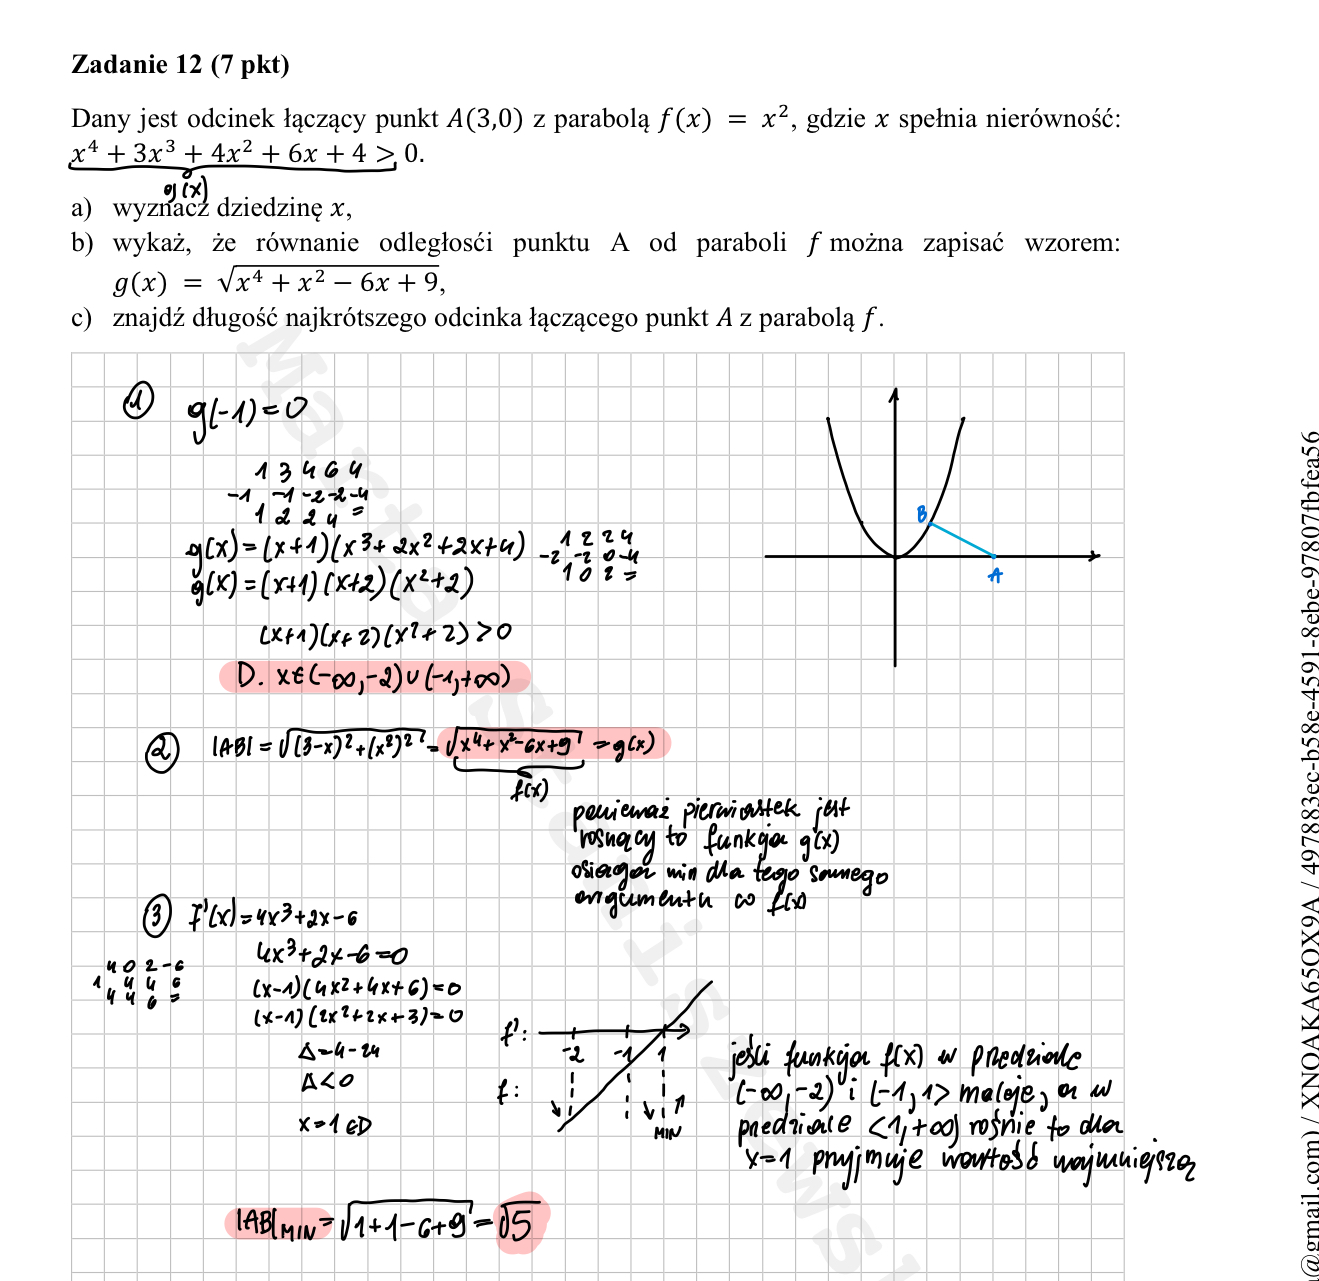 Zadanie 12 (7 pkt)
Dany jest odcinek łączący punkt A(3,0) z parabolą f(x) = x², gdzie x spełnia nierówność:
x⁴ + 3x³ + 4x² + 6x + 4 > 0.
g(x)
a) wyznacz dziedzinę x,
b) wykaż, że równanie odległośći punktu A od paraboli f można zapisać wzorem:
g(x) = √(x⁴ + x² − 6x + 9),
c) znajdź długość najkrótszego odcinka łączącego punkt A z parabolą f.
1 g(-1)=0
1 3 4 6 4
-1 -1 -2 -2 -4
1 2 2 4 =
g(x)=(x+1)(x³+2x²+2x+4)
1 2 2 4
-2 -2 0 -4
1 0 2 =
g(x)=(x+1)(x+2)(x²+2)
(x+1)(x+2)(x²+2)>0
D. x∈(-∞,-2)∪(-1,+∞)
B
A
2 |AB| = √((3-x)²+(x²)²) = √(x⁴+x²-6x+9) = g(x)
f(x)
ponieważ pierwiastek jest
rosnący to funkcja g(x)
osiąga min dla tego samego
argumentu co f(x)
3 f'(x)=4x³+2x-6
4x³+2x-6=0
4 0 2 -6
1 4 4 6
4 4 6 =
(x-1)(4x²+4x+6)=0
(x-1)(2x²+2x+3)=0
Δ=4-24
Δ<0
x=1∈D
f':
-2 -1 1
f:
MIN
jeśli funkcja f(x) w przedziale
(-∞,-2) i (-1,1> maleje, a w
przedziale <1,+∞) rośnie to dla
x=1 przyjmuje wartość najmniejszą
|AB|MIN = √(1+1-6+9) = √5
@gmail.com) / XNOAKA65OX9A / 497883ec-b58e-4591-8ebe-97807fbfea56